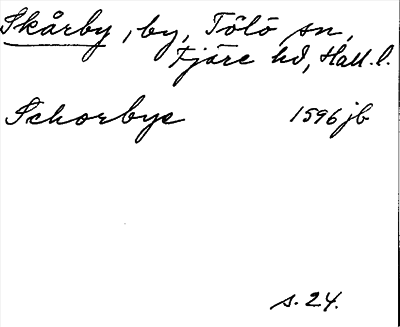 Skårby, by, Tölö sn,
Fjäre hd, Hall. l.
Schorbye 1596 jb
s. 24.